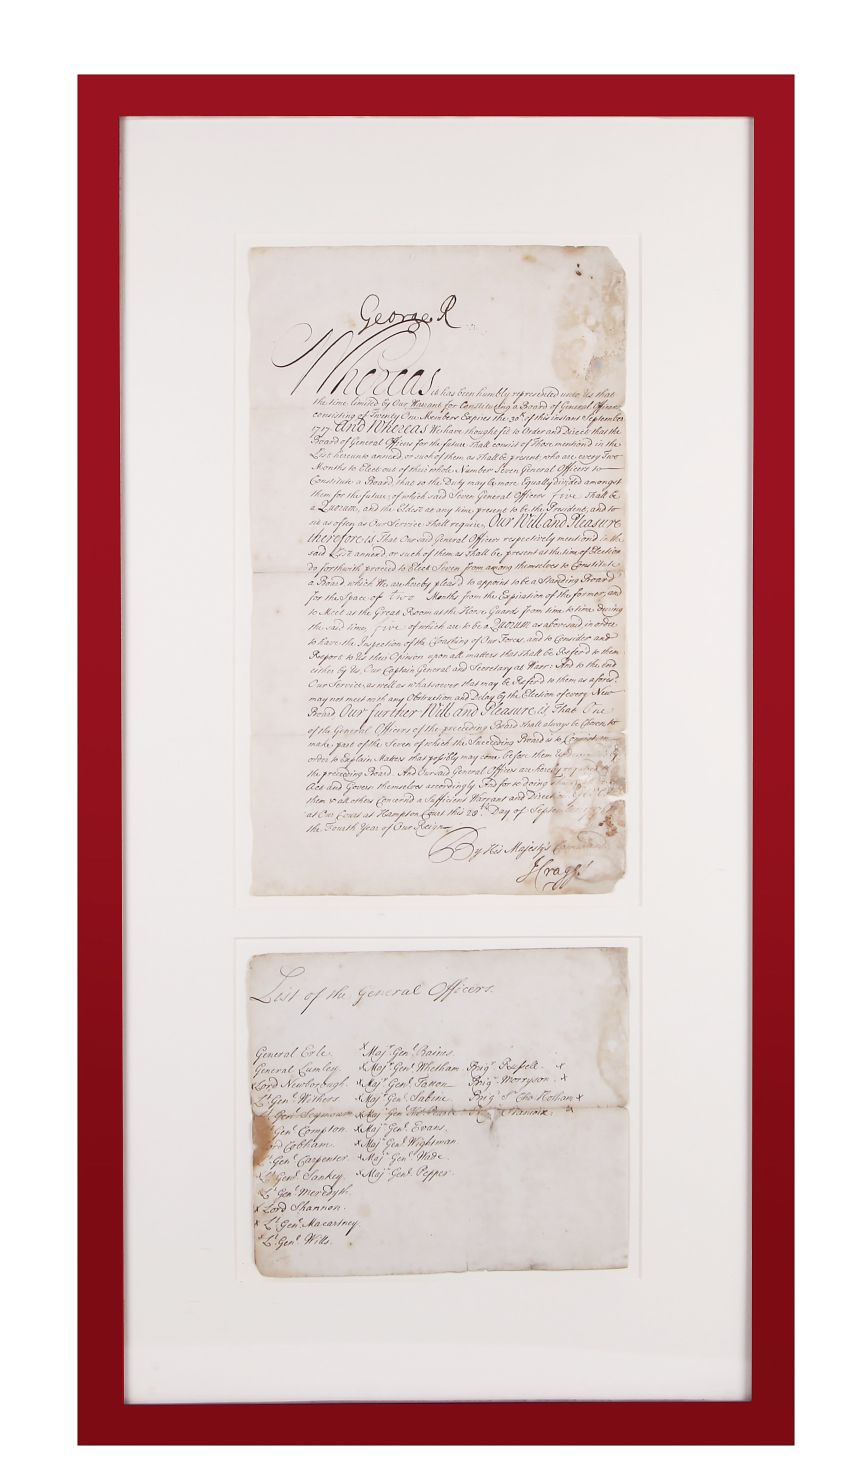 George R
Whereas it has been humbly represented unto Us that
the time limited by Our Warrant for Constituting a Board of General Officers
consisting of Twenty One Members Expires the 30th of this instant September
1717. And Whereas We have thought fit to Order and Direct that the
Board of General Officers for the future shall consist of those mention'd in the
List hereunto annex'd or such of them as shall be present who are every Two
Months to Elect out of their whole Number Seven General Officers to
Constitute a Board that so the Duty may be more Equally divided amongst
them for the future; of which said Seven General Officers five shall be
a Quorum, and the Eldest at any time present to be the President, and to
sit as often as Our Service shall require, Our Will and Pleasure
therefore is That Our said General Officers respectively mention'd in the
said List annex'd or such of them as shall be present at the time of Election
do forthwith proceed to Elect Seven from among themselves to Constitute
a Board which We are hereby pleas'd to appoint to be a Standing Board
for the Space of two Months from the Expiration of the former, and
to Meet at the Great Room at the Horse Guards from time to time during
the said time, five of which are to be a Quorum as aforesaid in order
to have the Inspection of the Cloathing of Our Forces, and to Consider and
Report to Us their Opinion upon all matters that shall be Refer'd to them
either by Us, Our Captain General and Secretary at Warr: And to the end
Our Service, as well as whatsoever that may be Refer'd to them as afores.d
may not meet with any Obstruction and Delay by the Election of every New
Board Our further Will and Pleasure is That One
of the General Officers of the preceding Board shall always be Chosen to
make part of the Seven of which the Succeeding Board is to Consist in
order to Explain Matters that possibly may come before them
the preceding Board. And Our said General Officers are hereby required to
Act and Govern themselves accordingly And for so doing this shall be
them & all others Concern'd a Sufficient Warrant and Direction Given
at Our Court at Hampton Court this 28th Day of September 1717
the Fourth Year of Our Reign.
By His Majesty's Command
J Craggs
List of the General Officers.
General Erle. x Maj.r Gen.l Raines
General Lumley. x Maj.r Gen.l Whetham Brig.r Russell. x
Lord Newborough. x Maj.r Gen.l Tatton Brig.r Morryson. x
L.t Gen.l Withers. x Maj.r Gen.l Sabine Brig.r S.r Cha Hotham x
Gen.l Seymour x Maj.r Gen.l Tho: Pearce
Gen.l Compton. x Maj.r Gen.l Evans.
Lord Cobham. x Maj.r Gen.l Wightman
L.t Gen.l Carpenter. x Maj.r Gen.l Wade.
x L.t Gen.l Sankey. x Maj.r Gen.l Pepper.
L.t Gen.l Meredyth.
x Lord Shannon.
x L.t Gen.l Macartney.
x L.t Gen.l Wills.